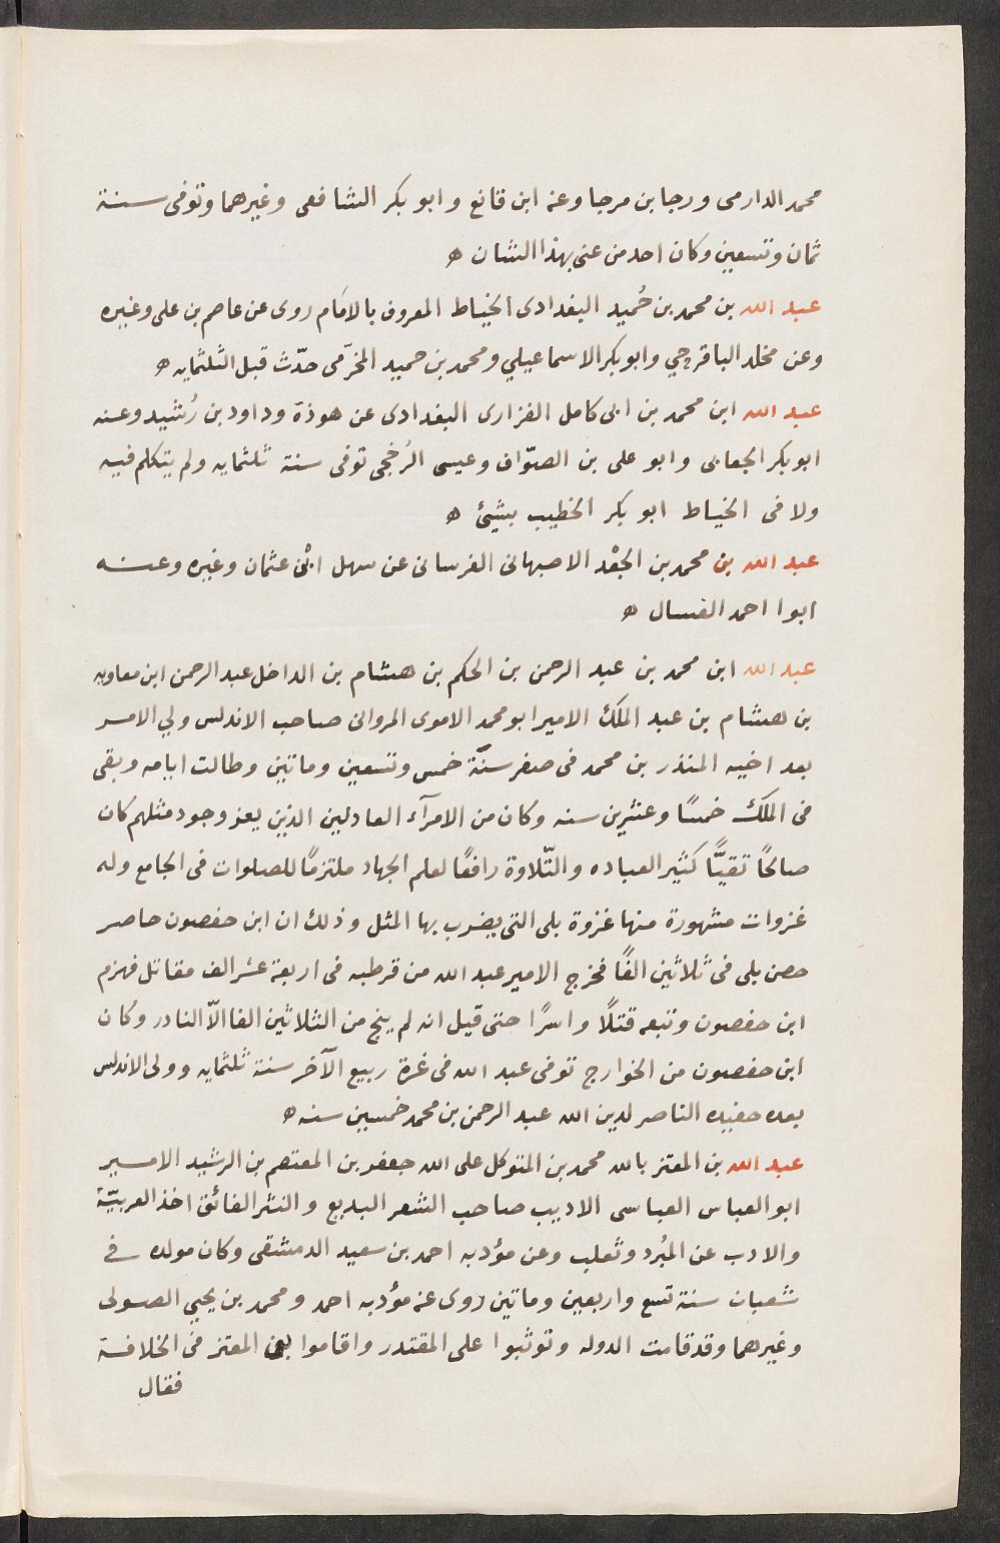 محمد الدارمى ورجا بن مرجا وعنه ابن قانع وابو بكر الشافعى وغيرهما وتوفى سنة
ثمان وتسعين وكان احد من عنى بهذا الشان ه
عبد الله بن محمد بن حُميد البغدادى الخياط المعروف بالامَام روى عن عاصم بن على وغيره
وعن مخلد الباقرحي وابو بكر الاسماعيلي ومحمد بن حميد المخرّمى حدّث قبل الثلثمايه ه
عبد الله ابن محمد بن ابى كامل الفزارى البغدادى عن هوذة وداود بن رُشيد وعنه
ابو بكر الجعابى وابو على بن الصوّاف وعيسى الرُخجى توفى سنة ثلثمايه ولم يتكلم فيه
ولا فى الخياط ابو بكر الخطيب بشيئ ه
عبد الله بن محمد بن الجعْد الاصبهانى الفرسانى عن سهل ابْن عثمان وغيره وعنه
ابوا احمد العسال ه
عبد الله ابن محمد بن عبد الرحمن بن الحكم بن هشام بن الداخل عبد الرحمن ابن معاويه
بن هشام بن عبد الملك الامير ابو محمد الاموى المروانى صاحب الاندلس ولي الامر
بعد اخيه المنذر بن محمد فى صفر سنة خمس وتسعين وماتين وطالت ايامه وبقى
فى الملك خمسًا وعشرين سنه وكان من الامرآء العادلين الذين يعز وجود مثلهم كان
صالحًا تقيًّا كثير العباده والتّلاوة رافعًا لعلم الجهاد ملتزمًا للصلوات فى الجامع وله
غزوات مشهورة منها غزوة بلى التى يضرب بها المثل وذلك ان ابن حفصون حاصر
حصن بلى فى ثلاثين الفًا فخرج الامير عبد الله من قرطبه فى اربعة عشر الف مقاتل فهزم
ابن حفصون وتبعه قتلًا واسرًا حتى قيل انه لم ينج من الثلاثين الفا الّا النادر وكان
ابن حفصون من الخوارج توفى عبد الله فى غرة ربيع الآخر سنة ثلثمايه وولى الاندلس
بعده حفيده الناصر لدين الله عبد الرحمن بن محمد خمسين سنه ه
عبد الله بن المعتز بالله محمد بن المتوكل على الله جعفر بن المعتصم بن الرشيد الامير
ابو العباس العباسى الاديب صاحب الشعر البديع والنثر الفائق اخذ العربيّة
والادب عن المُبرد وثعلب وعن مؤدبه احمد بن سعيد الدمشقى وكان مولده فى
شعبان سنة تسع واربعين وماتين روى عنه مؤدبه احمد ومحمد بن يحيي الصولى
وغيرهما وقد قامت الدوله وتوثبوا على المقتدر واقاموا بن المعتز فى الخلافة
فقال